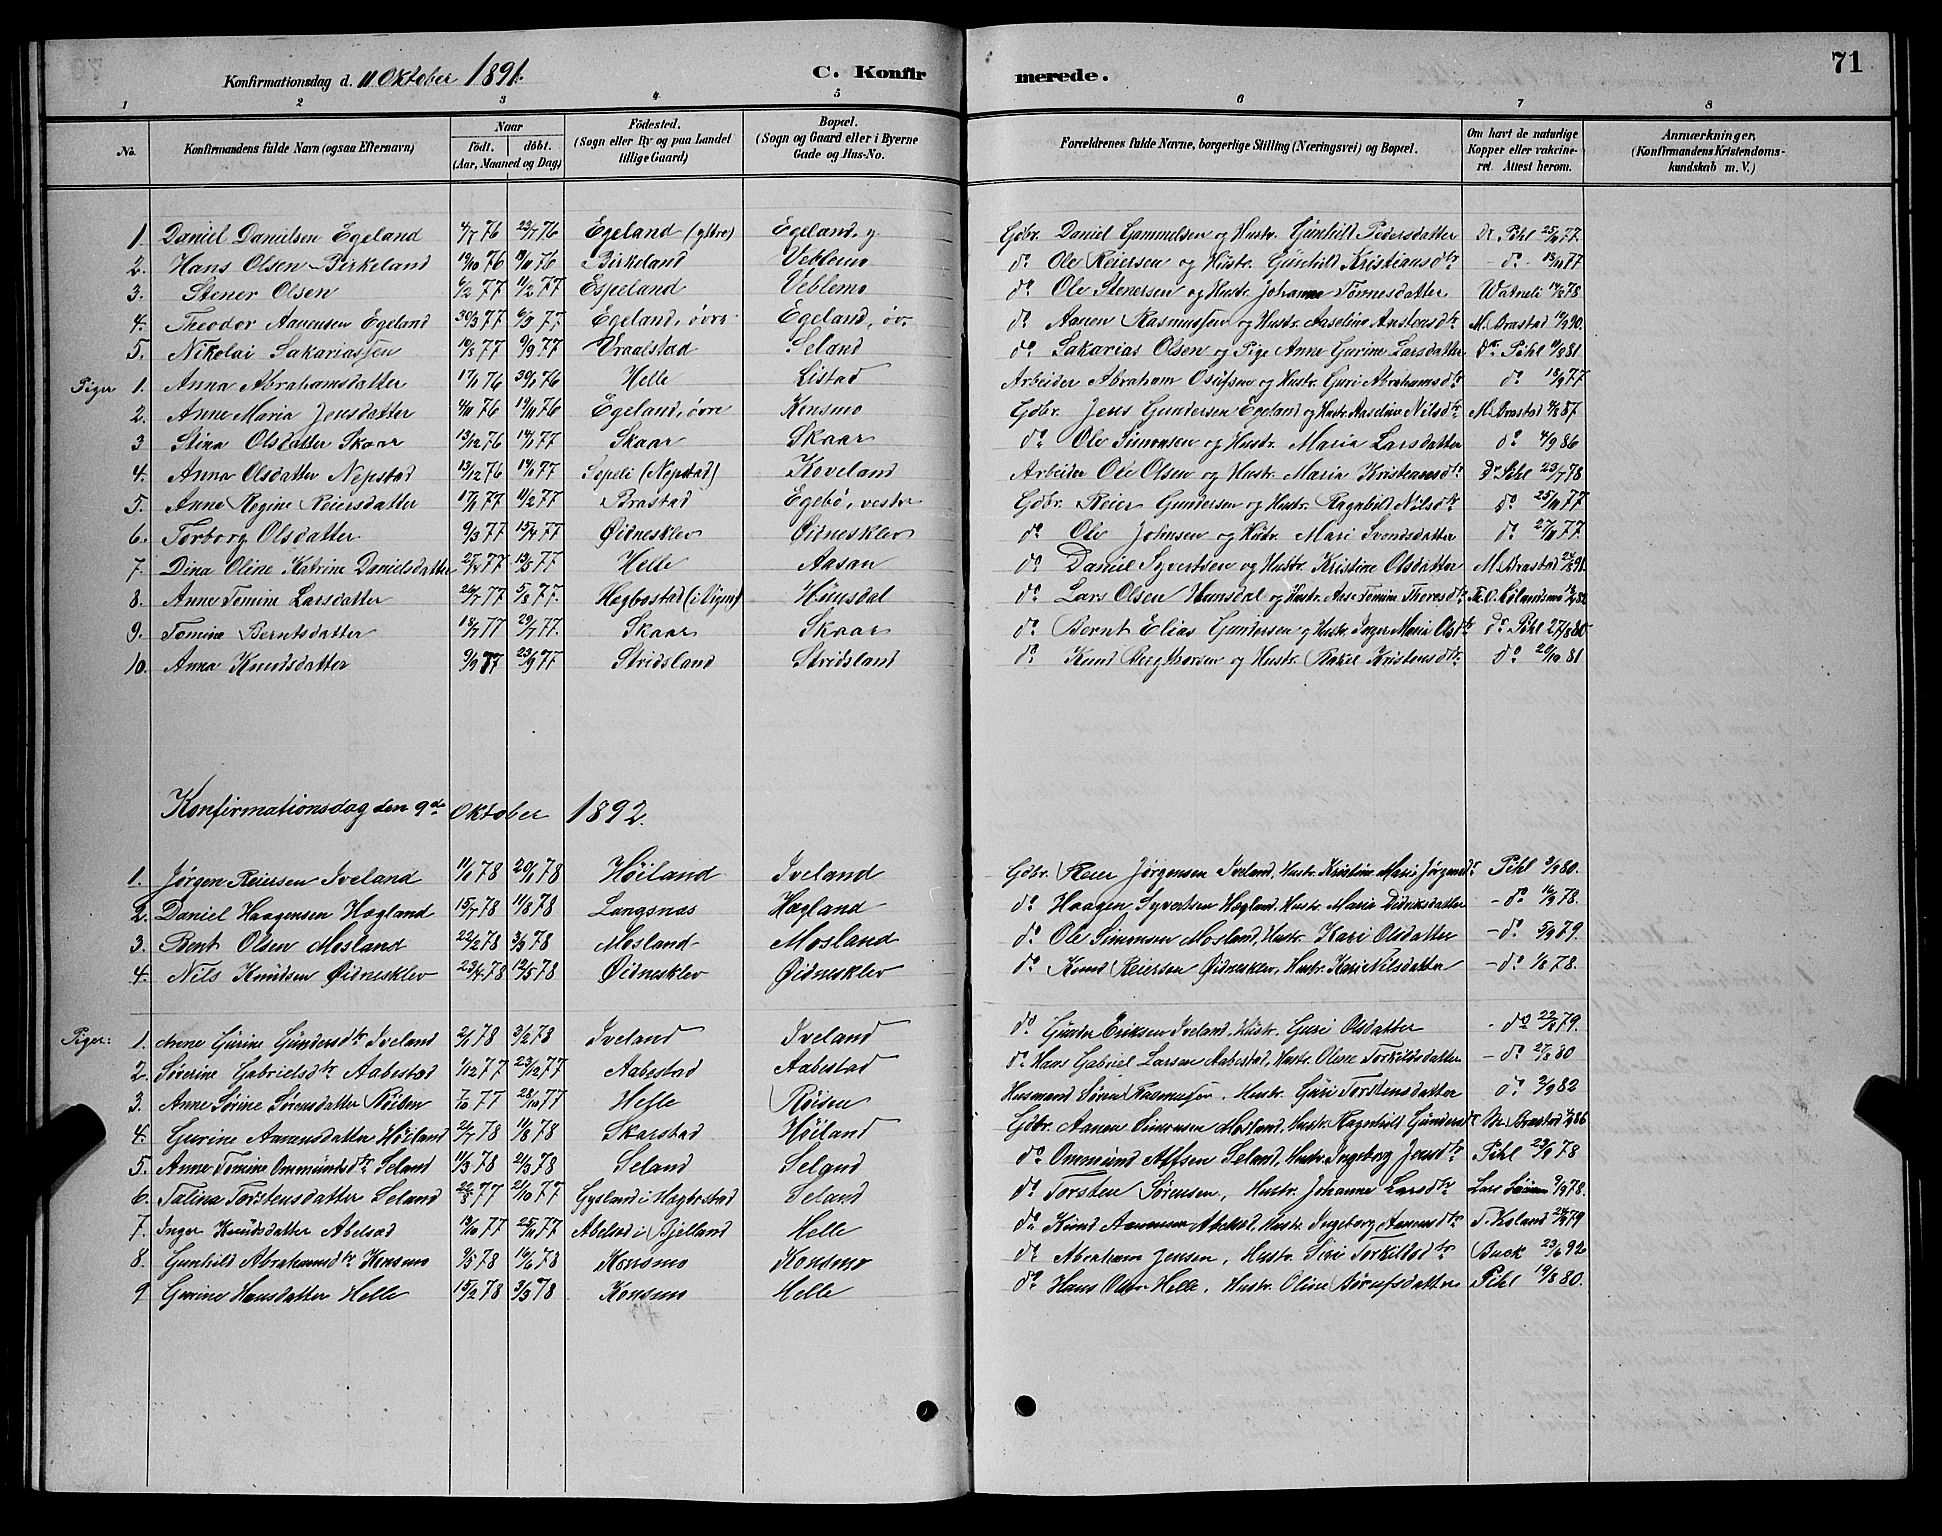 71
Konfirmationsdag d. 11 Oktober 1891. C. Konfirmerede.
1 2 3 4 5 6 7 8
No. Konfirmandens fulde Navn (ogsaa Efternavn) Naar födt. döbt. (Aar, Maaned og Dag) Födested. (Sogn eller By og paa Landet tillige Gaard) Bopæl. (Sogn og Gaard eller i Byerne Gade og Hus-No. Forældrenes fulde Navne, borgerlige Stilling (Næringsvei) og Bopæl. Om havt de naturlige Kopper eller vakcineret. Attest herom. Anmærkninger. (Konfirmandens Kristendomskundskab m. V.)
1. Daniel Danielsen Egeland 4/7 76 23/7 76 Egeland (ytre) Egeland, y Gdbr. Daniel Gammelsen og Hustr. Gunhild Pedersdatter Dr. Pihl 25/9 77.
2. Hans Olsen Birkeland 19/10 76 19/11 76 Birkeland Veblemo do Ole Reiersen og Hustr. Gunhild Kristiansdtr - do 77
3. Stener Olsen 6/2 77 11/2 77 Espeland Veblemo do Ole Stenersen og Hustr. Johanne Tomesdatter Watneli 78
4. Theodor Aanensen Egeland 77 77 Egeland, övre Egeland, öv. do Aanen Rasmussen og Hustr. Aaseline Anstensdtr M. Brastad 90.
5. Nikolai Sakariassen 77 9/9 77 Vraalstad Seland do Sakarias Olsen og Pige Anne Gurine Larsdatter Dr. Pihl 81
Piger 1. Anna Abrahamsdatter 76 76 Helle Listad Arbeider Abraham Osufsen og Hustr. Guri Abrahamsdtr do 77
2. Anne Maria Jensdatter 76 19/11 76 Egeland, övre Konsmo Gdbr. Jens Gundersen Egeland og Hustr. Aaseline Nilsdtr M. Brastad 87
3 Stina Olsdatter Skaar 13/12 76 14/1 77 Skaar Skaar do Ole Simonsen og Hustr. Maria Larsdatter do 4/9 86
4. Anna Olsdatter Nepstad 13/12 76 77 Sopeli (Nepstad) Koveland Arbeider Ole Olsen og Hustr. Maria Kristiansdtr Dr Pihl 23/7 78
5. Anne Regine Reiersdatter 17/1 77 11/2 77 Brastad Egebö, vestr Gdbr. Reier Gundersen og Hustr. Ragnhild Nilsdtr do 25/9 77
6. Torborg Olsdatter 9/3 77 15/4 77 Øidnesklev Øidnesklev do Ole Johnsen og Hustr. Mari Svendsdatter do 77
7. Dina Oline Katrine Danielsdatter 77 13/5 77 Helle Aasan do Daniel Syvertsen og Hustr. Kristine Olsdatter M. Brastad 91.
8. Anne Tomine Larsdatter 26/7 77 5/8 77. Hægbostad (i Undal) Hunsdal do Lars Olsen Hunsdal og Hustr. Ase Tomine Thoresdtr 82
9. Tomine Berntsdatter 18/7 77 29/7 77. Skaar Skaar do Bernt Elias Gundersen og Hustr. Inger Maria Olsdtr Dr. Pihl 27/8 80
10. Anna Knudsdatter 9/9 77 23/9 77 Stridsland Stridsland do Knud Bergthorsen og Hustr. Rakel Kristensdtr. do 20/10 81
Konfirmationsdag den 9de Oktober 1892.
1. Jørgen Reiersen Iveland 11/1 78 20/1 78 Höiland Iveland Gdbr. Reier Jørgensen Iveland, Hustr. Kristine Marie Jörgensdtr Pihl 80.
2. Daniel Haagensen Hægland 15/7 78 11/8 78 Langsnæs Hægland do Haagen Syvertsen Hægland, Hustr. Maria Didriksdatter - do 78.
3. Bent Olsen Mosland 22/2 78 3/3 78 Mosland Mosland do Ole Simonsen Mosland, Hustr. Kari Olsdatter - do 79.
4. Nils Knudsen Øidnesklev 23/4 78 12/5 78 Øidnesklev Øidnesklev do Knud Reiersen Øidnesklev, Hustr. Kari Nilsdatter - do 78.
Piger: 1. Anne Gurine Gundersdtr Iveland 2/1 78 3/2 78 Iveland Iveland do Gunder Eriksen Iveland, Hustr. Guri Olsdatter - do 22/8 79.
2. Severine Gabrielsdtr Aabestad 1/12 77 23/12 77 Aabestad Aabestad do Hans Gabriel Larsen Aabestad, Hustr. Oline Torkildsdatter - do 27/8 80
3. Anne Sörine Sörensdatter Röisen 7/10 77 28/10 77 Helle Röisen Husmand Sören Rasmussen, Hustr. Guri Torstensdatter do 82
4. Gurine Aanensdatter Höiland 21/7 78 11/8 78 Skarstad Höiland Gdbr. Aanen Simonsen Mosland, Hustr. Ragnhild Gundersdtr M. Brastad 86
5. Anne Tomine Ommundsdtr Seland 11/3 78 21/3 78 Seland Seland do Ommund Alfsen Seland, Hustr. Ingeborg Jensdtr Pihl 78
6. Talina Torstensdatter Seland 77 21/10 77 Gysland i Hægbostad Seland do Torsten Sörensen, Hustr. Johanne Larsdtr 78.
7. Inger Knudsdatter Abelsæd 77 77 Abelsæd i Bjelland Helle do Knud Aanensen Abelsæd, Hustr. Ingeborg Aanensdtr T. Holand 79
8. Gunhild Abrahamsdtr Konsmo 9/5 78 16/6 78 Konsmo Konsmo do Abraham Jensen, Hustr. Siri Torkildsdtr Buck 23/6 92
9 Gurine Hansdatter Helle 15/2 78 3/3 78 Konsmo Helle do Hans Olsen Helle, Hustr. Oline Börufsdatter Pihl 19/8 80.